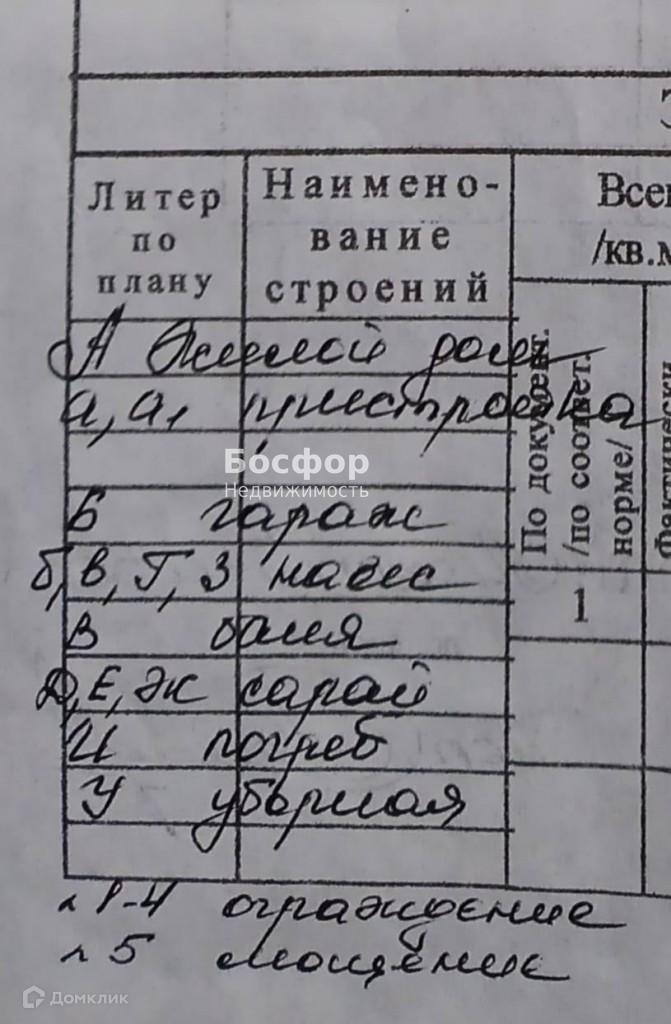 Литер
по
плану
Наимено-
вание
строений
Все
/кв.м
По документ.
/по соответ.
норме/
Фактически
1
А Жилой дом
а, а, пристройка
Босфор
Недвижимость
Б гараж
б, в, Г, З навес
В баня
Д, Е, Ж сарай
И погреб
У уборная
л 1-4 ограждение
л 5 мощение
Домклик